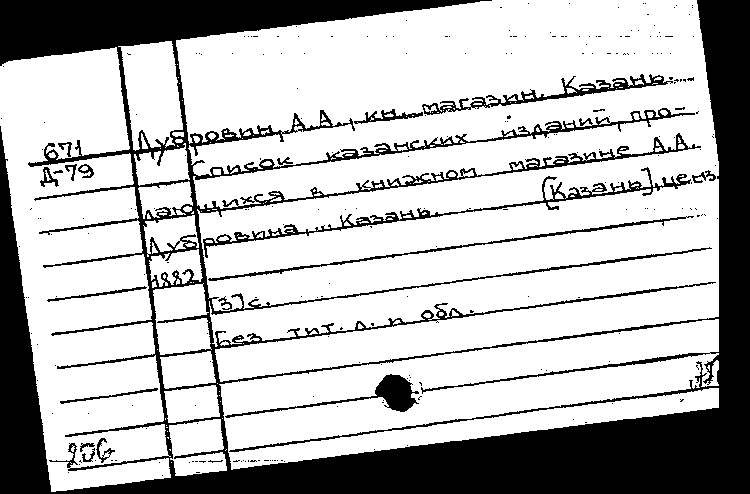 671
Д-79
Дубровин, А.А., кн. магазин. Казань.
Список казанских изданий, про-
дающихся в книжном магазине А.А.
Дубровина, ... Казань. [Казань], ценз.
1882.
[3] с.
Без тит. л. и обл.
206